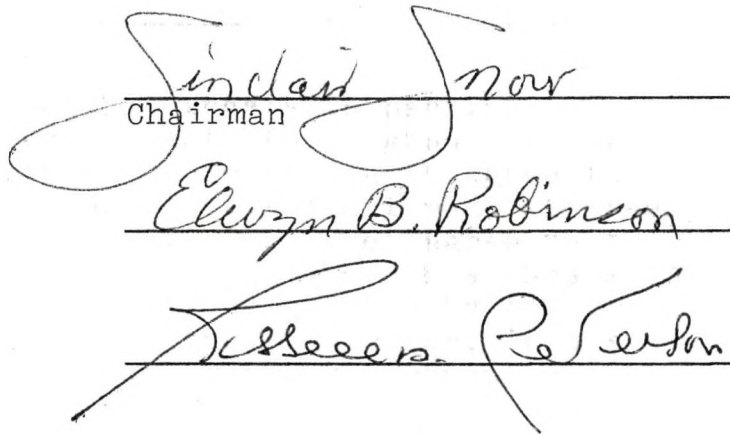 Sinclair Snow
Chairman
Elwyn B. Robinson
Peterson